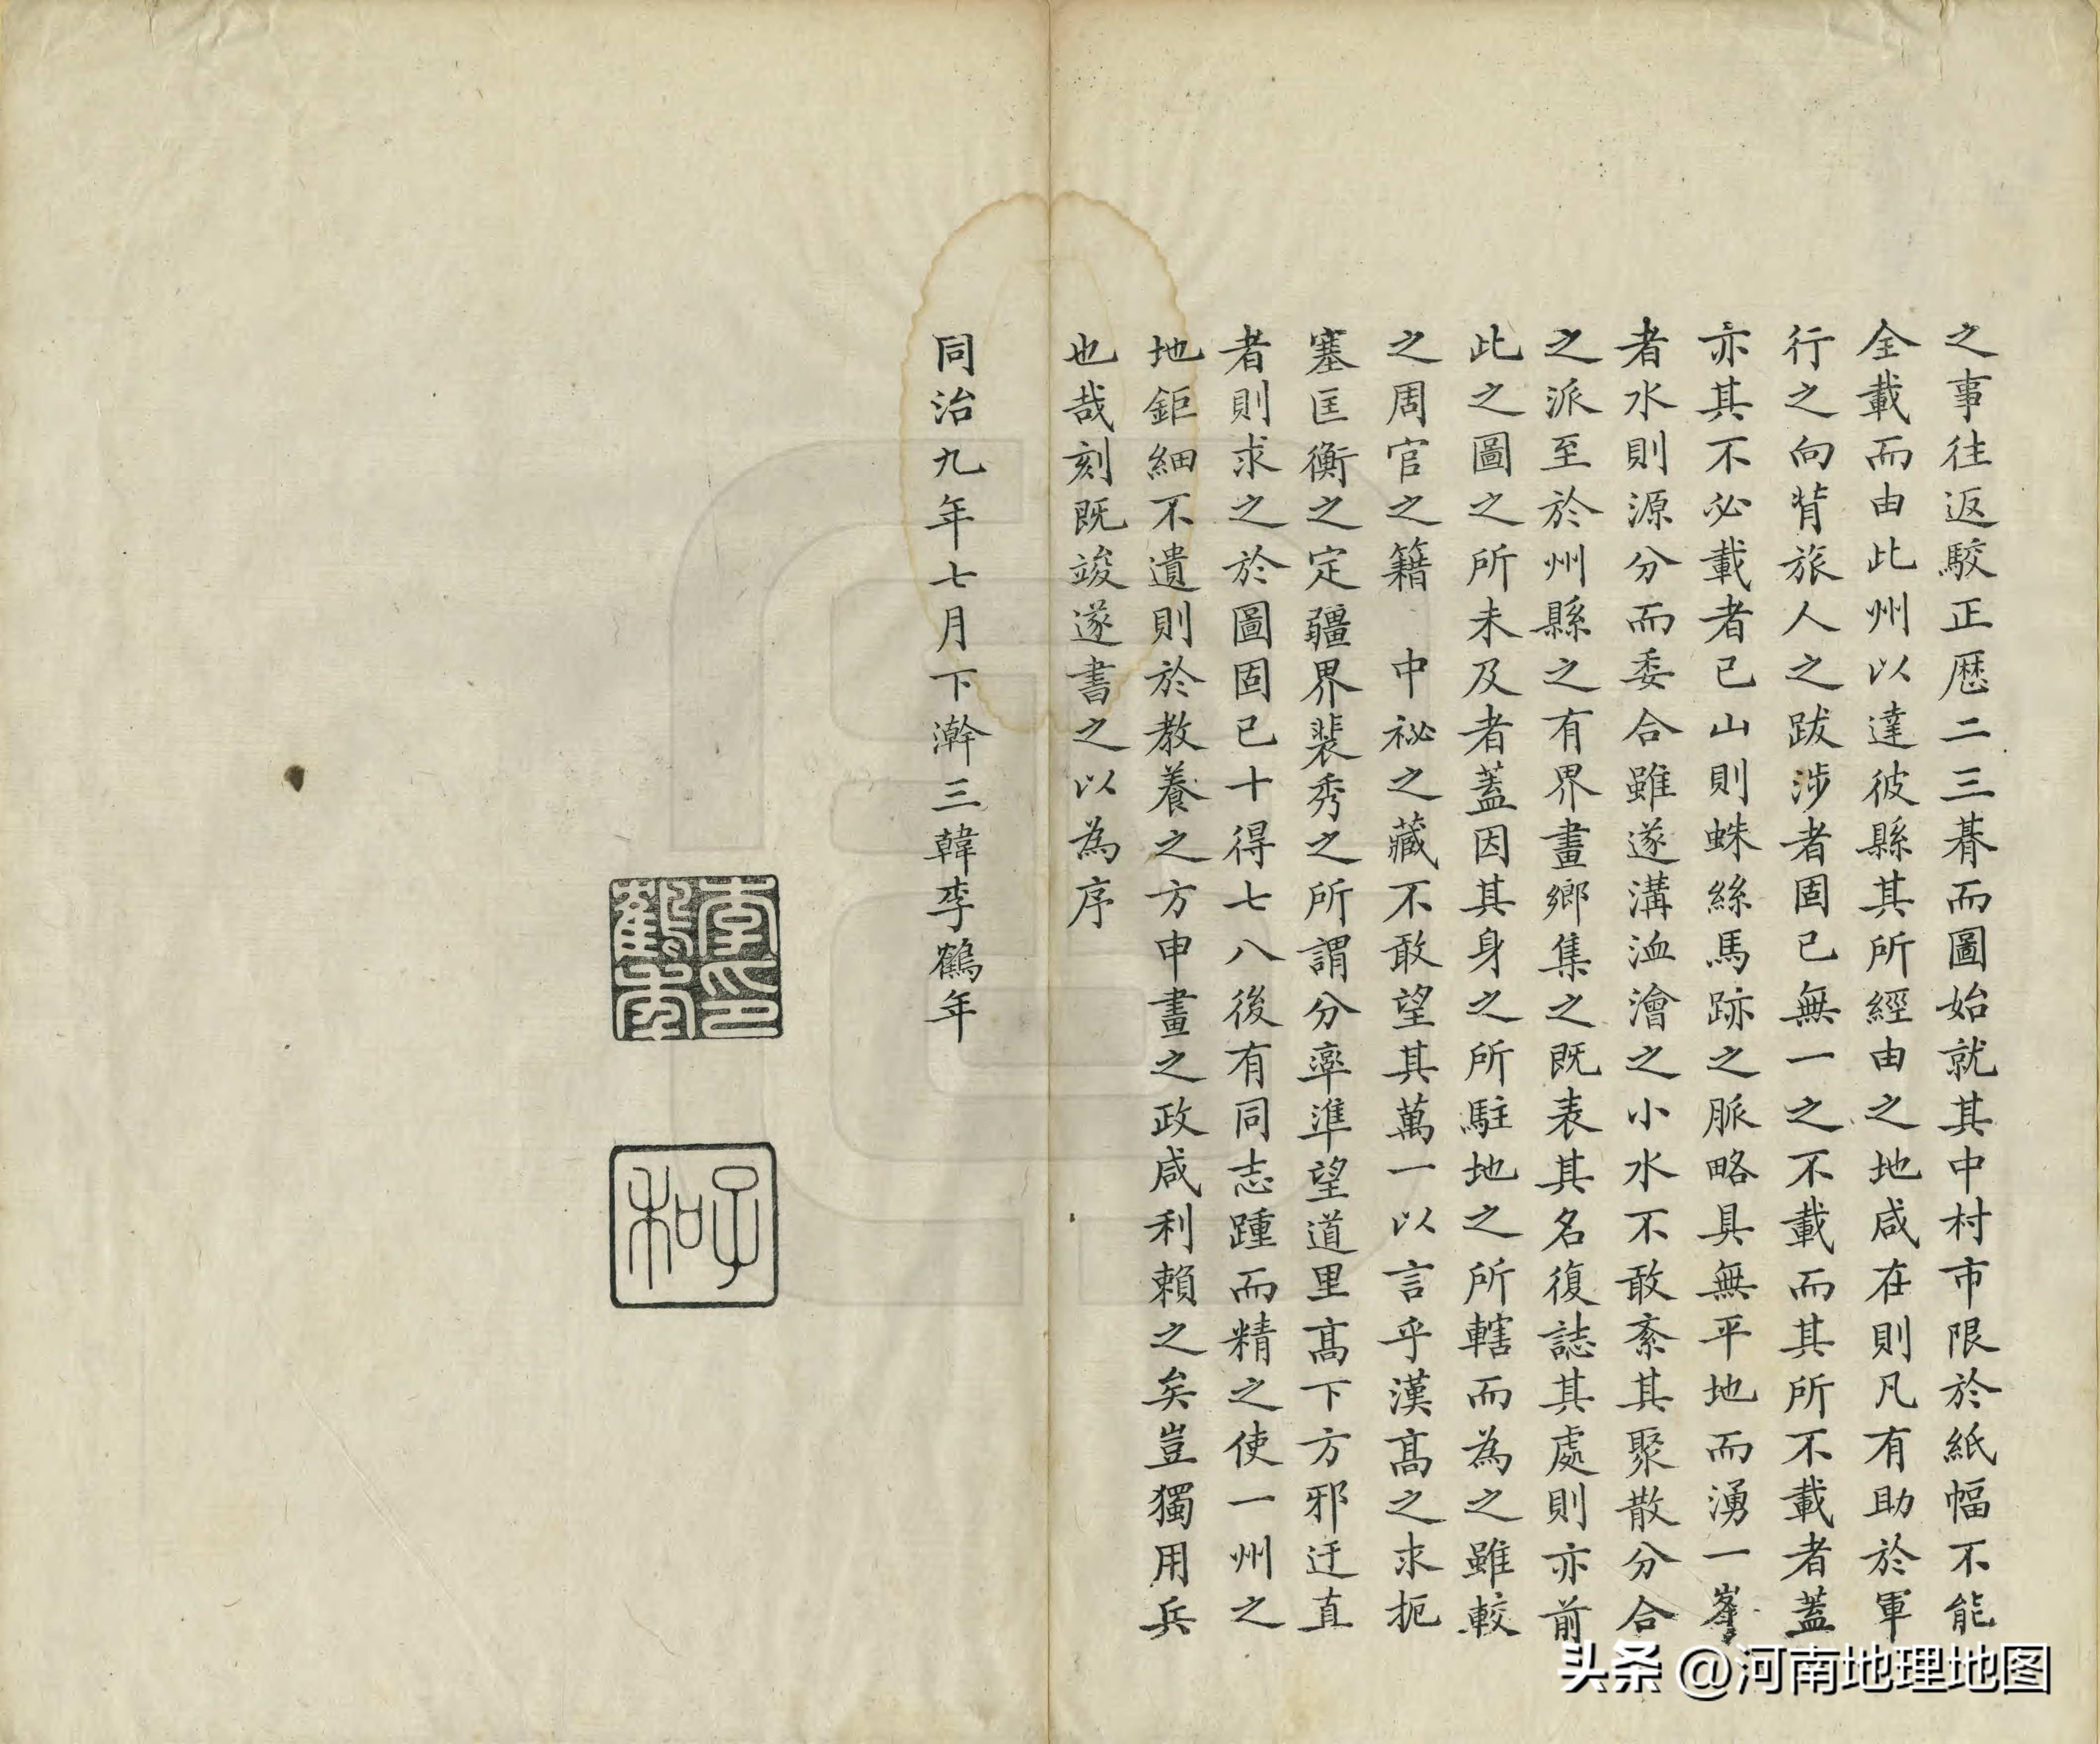 之事往返駮正歷二三朞而圖始就其中村市限於紙幅不能
全載而由此州以達彼縣其所經由之地咸在則凡有助於軍
行之向背旅人之跋涉者固已無一之不載而其所不載者蓋
亦其不必載者已山則蛛絲馬跡之脈略具無平地而湧一峯
者水則源分而委合雖遂溝洫澮之小水不敢紊其聚散分合
之派至於州縣之有界畫鄉集之既表其名復誌其處則亦前
此之圖之所未及者蓋因其身之所駐地之所轄而為之雖較
之周官之籍 中祕之藏不敢望其萬一以言乎漢高之求扼
塞匡衡之定疆界裴秀之所謂分率準望道里高下方邪迂直
者則求之於圖固已十得七八後有同志踵而精之使一州之
地鉅細不遺則於教養之方申畫之政咸利賴之矣豈獨用兵
也哉刻既竣遂書之以為序
同治九年七月下澣三韓李鶴年
李印鶴年
子和
头条 @河南地理地图